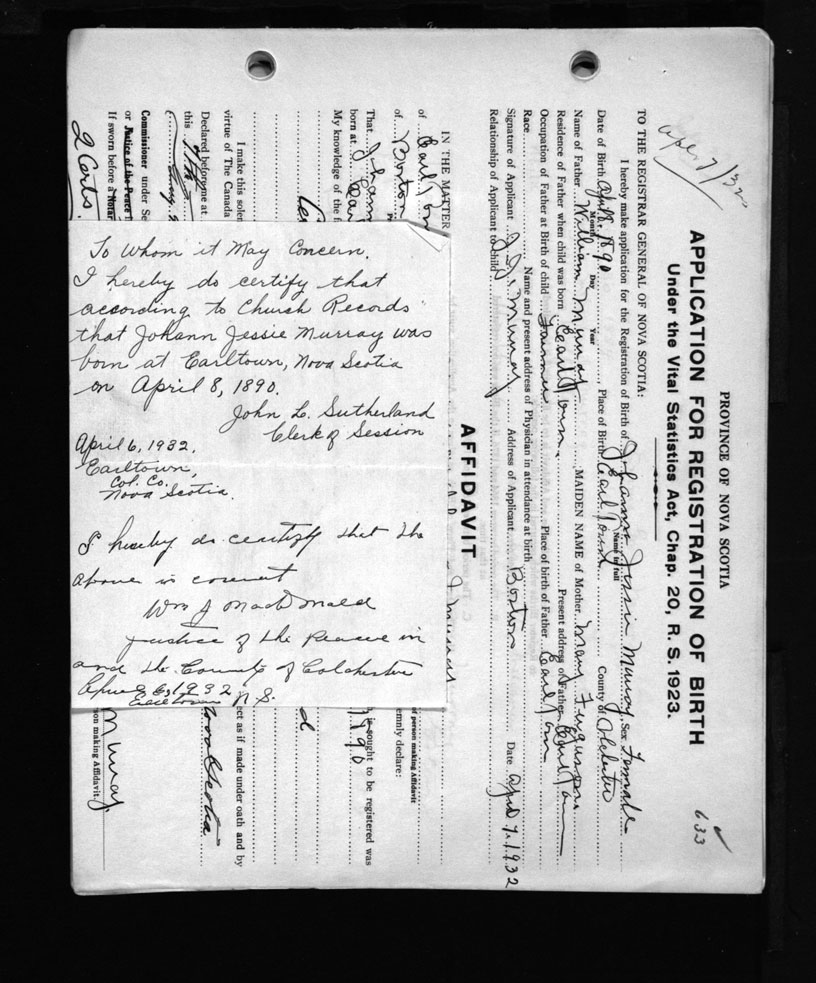 PROVINCE OF NOVA SCOTIA
APPLICATION FOR REGISTRATION OF BIRTH
Under the Vital Statistics Act, Chap. 20, R. S. 1923.
633
Apr 7/32
TO THE REGISTRAR GENERAL OF NOVA SCOTIA:
I hereby make application for the Registration of Birth of Johanna Jessie Murray Sex Female
Name in full
Date of Birth April 8. 90 Place of Birth Earltown County of Colchester
Month Day Year
Name of Father William Murray MAIDEN NAME of Mother Mary Ferguson
Residence of Father when child was born Earltown Present address of Father Earltown
Occupation of Father at Birth of child Farmer Place of birth of Father Earltown
Race Name and present address of Physician in attendance at birth
Signature of Applicant J. J. Murray Address of Applicant Boston Date April 7. 1932
Relationship of Applicant to child
AFFIDAVIT
IN THE MATTER
of Earltown
of Boston
of person making Affidavit
emnly declare:
That Johann
is sought to be registered was
born at Ear
1890
My knowledge of the f
d
I make this solem
ect as if made under oath and by
virtue of The Canada
Declared before me at
Nova Scotia
this 7th
Commissioner under Se
or Justice of the Peace
If sworn before a Notar
Murray
son making Affidavit.
2 Certs.
To Whom it May Concern.
I hereby do certify that
according to Church Records
that Johann Jessie Murray was
born at Earltown, Nova Scotia
on April 8, 1890.
John L. Sutherland
Clerk of Session
April 6, 1932.
Earltown,
Col. Co.
Nova Scotia.
I hereby do certify that the
above is correct
Wm J MacDonald
Justice of the Peace in
and the County of Colchester
April 6 1932
Earltown N. S.